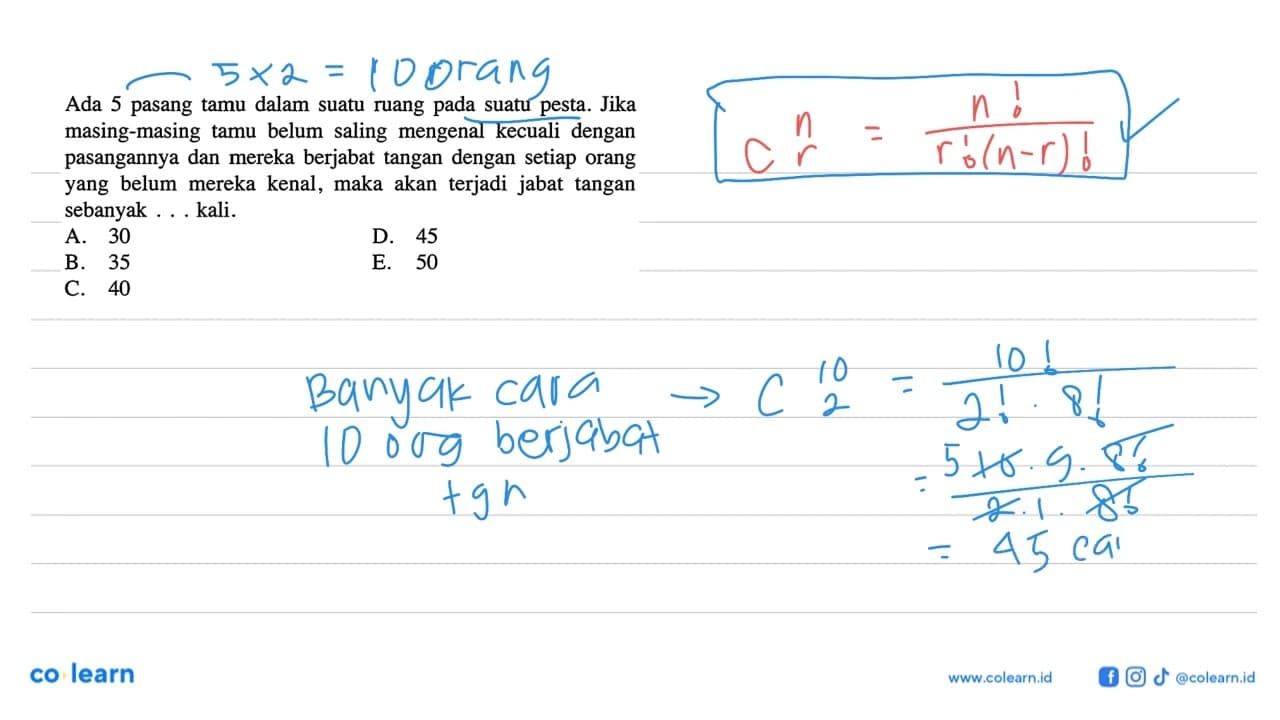 5 x 2 = 10 orang
Ada 5 pasang tamu dalam suatu ruang pada suatu pesta. Jika
masing-masing tamu belum saling mengenal kecuali dengan
pasangannya dan mereka berjabat tangan dengan setiap orang
yang belum mereka kenal, maka akan terjadi jabat tangan
sebanyak . . . kali.
A. 30 D. 45
B. 35 E. 50
C. 40
C n r = n! / r!(n-r)!
Banyak cara
10 oog berjabat
tgn
→ C 10 2 = 10! / 2! . 8!
= 5 10 . 9 . 8! / 2 . 1 . 8!
= 45 car
co learn
www.colearn.id
@colearn.id